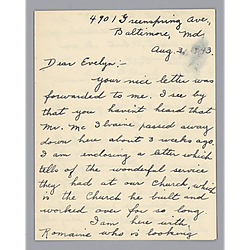 4901 Greenspring Ave,
Baltimore, Md
Aug. 1943.
Dear Evelyn:-
your nice letter was
forwarded to me. I see by
that you haven't heard that
Mr. Mc Ilvaine passed away
down here about 3 weeks ago.
I am enclosing a letter which
tells of the wonderful service
they had at our Church, which
is the Church he built and
worked over for so long
I am here with
Romaine who is looking